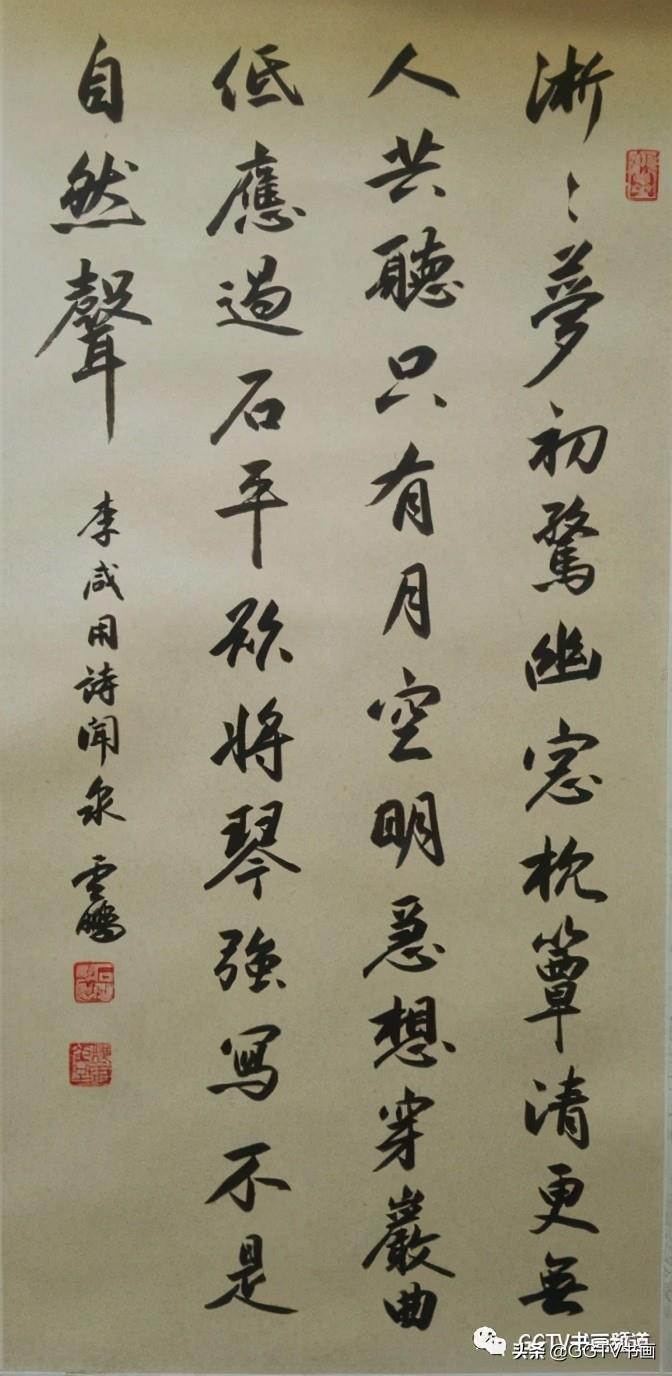 淅〻夢初驚幽窓枕簟清更無
人共聽只有月空明急想穿巖曲
低應過石平欲將琴強寫不是
自然聲
李咸用詩聞泉 雲鵬
GGTV书画频道
头条 @GGTV书画